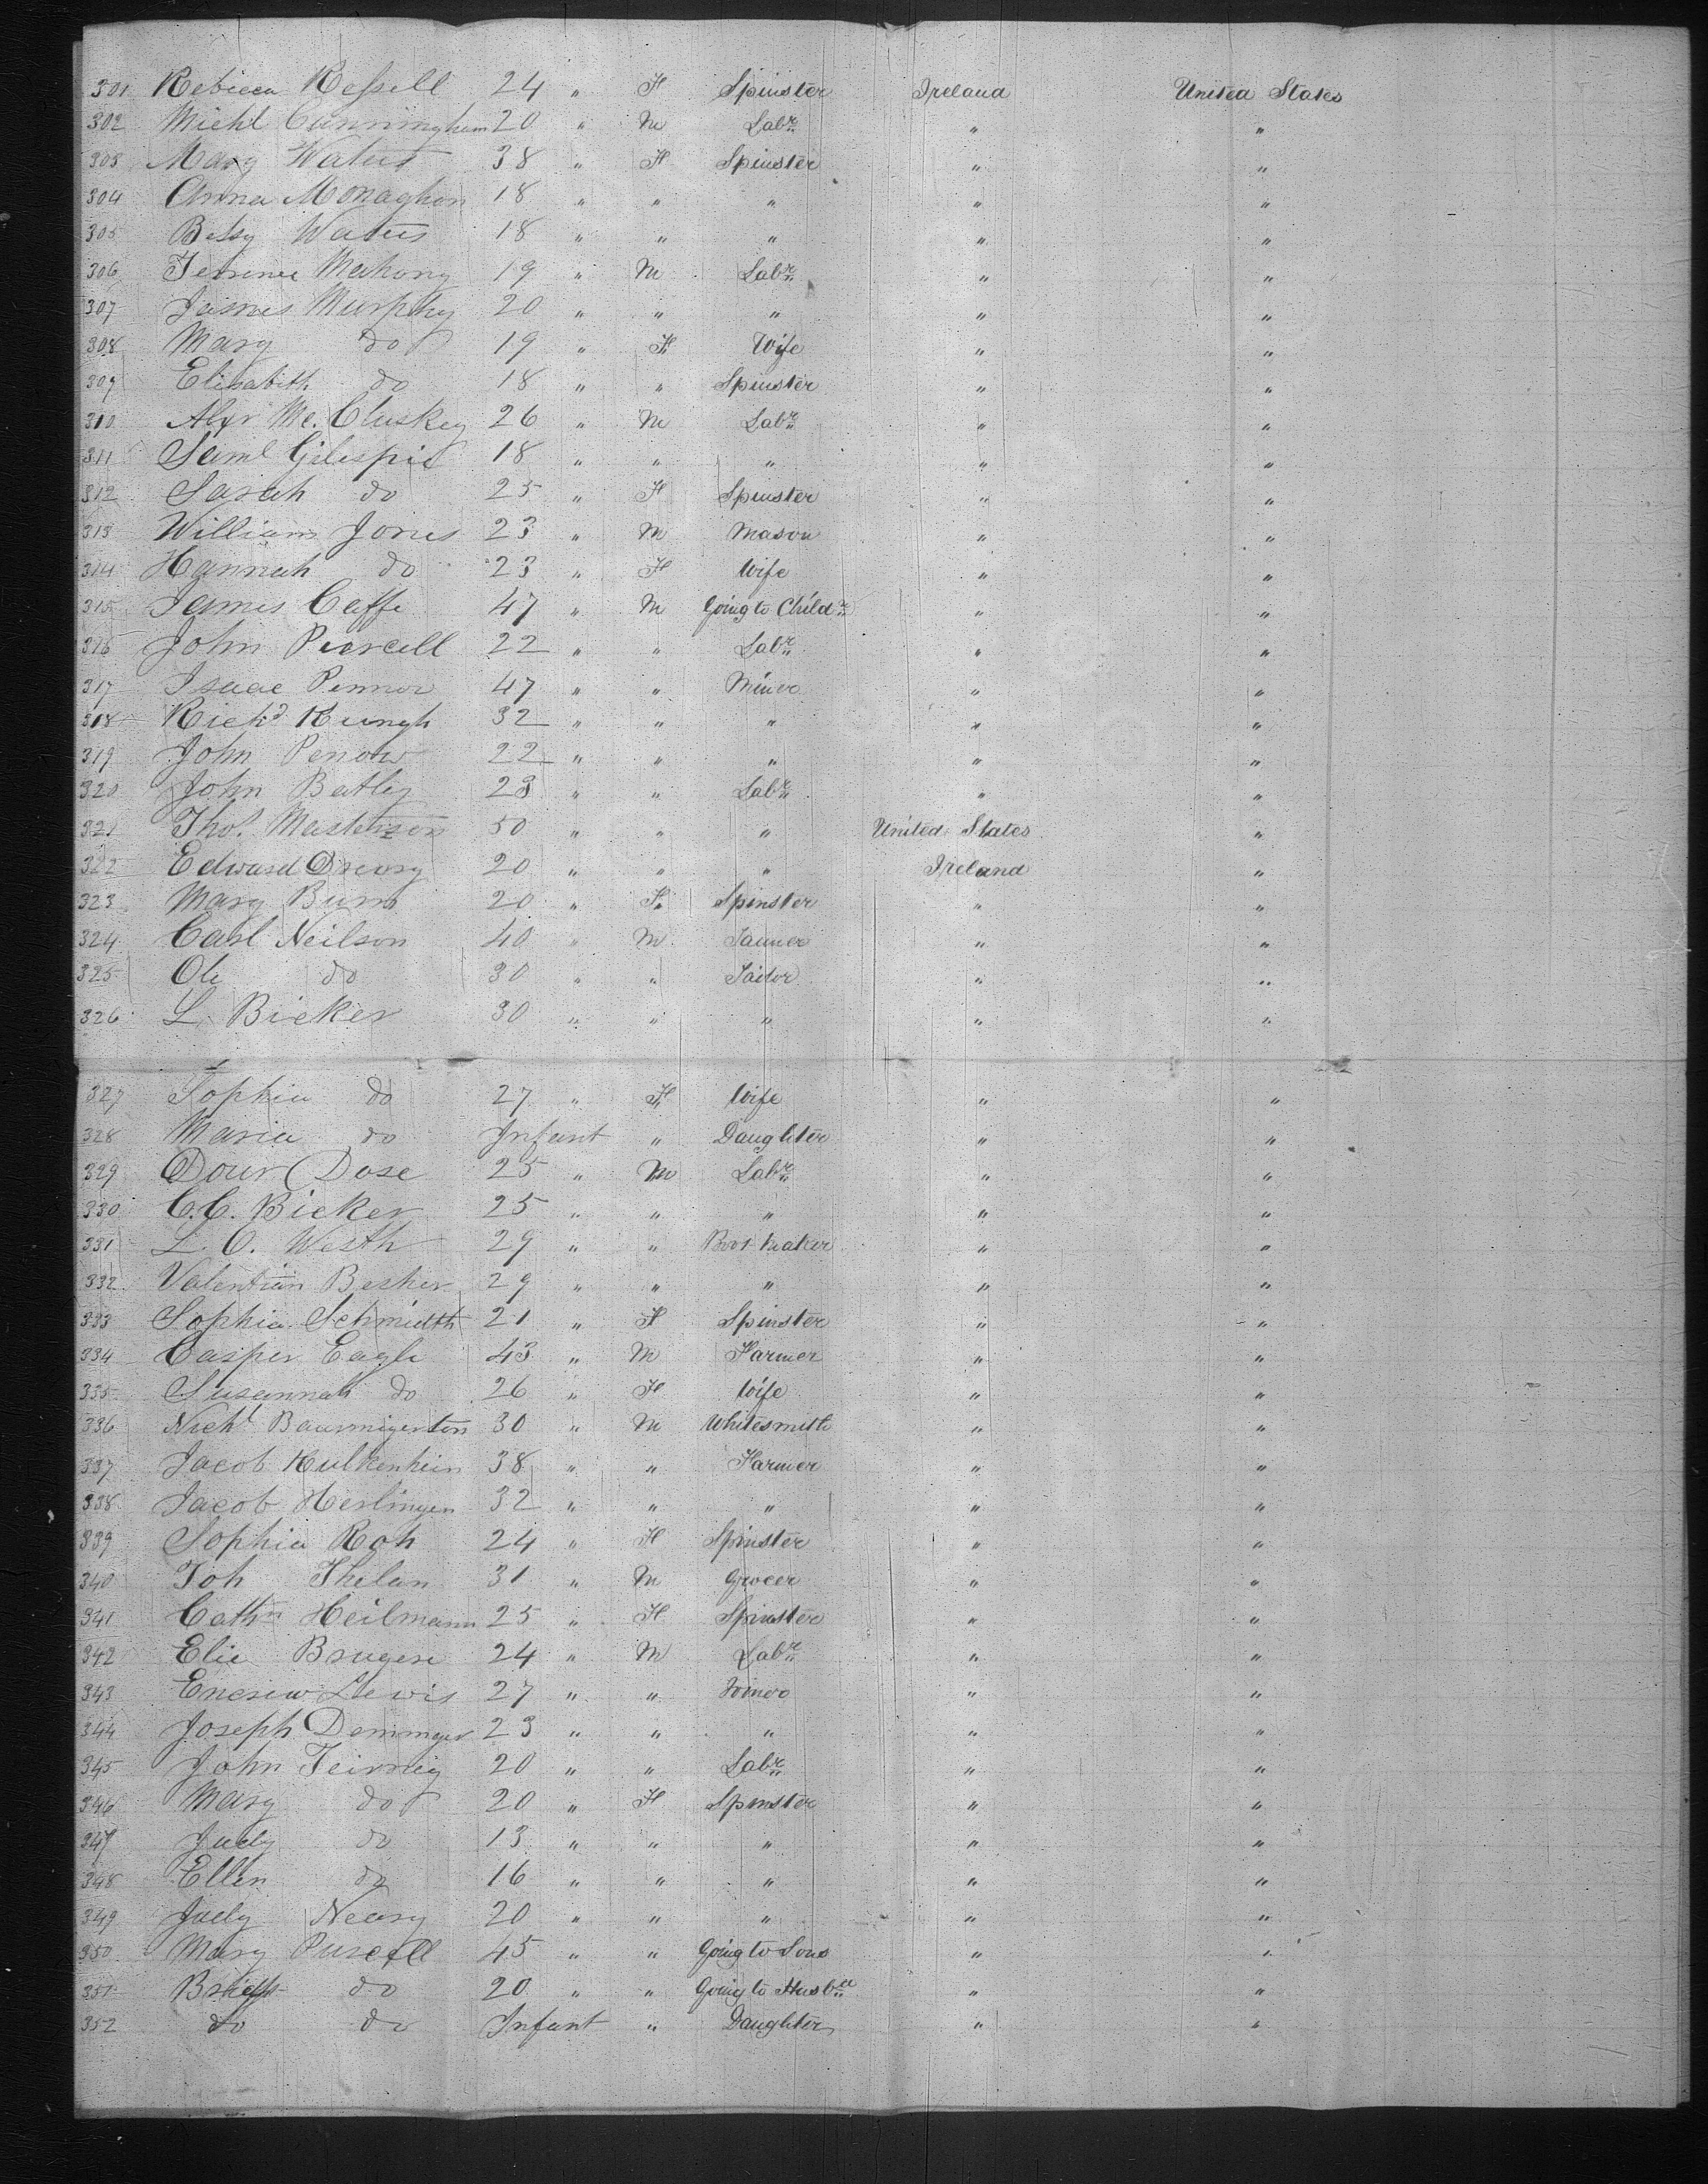 301 Rebicca Kessell 24 " F Spinster Ireland United States
302 Michl Cunningham 20 " M Labr " "
303 Mary Waters 38 " F Spinster " "
304 Anna Monaghan 18 " " " " "
305 Betsy Waters 18 " " " " "
306 Terrence Mahony 19 " M Labr " "
307 James Murphy 20 " " " " "
308 Mary do 19 " F Wife " "
309 Elisabith do 18 " " Spinster " "
310 Alexr Mc.Cluskey 26 " M Labr " "
311 Saml Gilespie 18 " " " " "
312 Sarah do 25 " F Spinster " "
313 William Jones 23 " M Mason " "
314 Hannah do 23 " F Wife " "
315 James Caffe 47 " M Going to Childn " "
316 John Peercell 22 " " Labr " "
317 Isaac Pennor 47 " " Miner " "
318 Richd 32 " " " " "
319 John Penow 22 " " " " "
320 John Batley 23 " " Labr " "
321 Thos. Masterson 50 " " " United States "
322 Edward Drewry 20 " " " Ireland "
323 Mary Burns 20 " F. Spinster " "
324 Carl Neilson 40 " M Tanner " "
325 Ole do 30 " " Tailor " "
326 L. Bicker 30 " " " " "
327 Sophia do 27 " F Wife " "
328 Maria do Infant " Daughter " "
329 Dour Dose 25 " M Labr " "
330 C.C. Bicker 25 " " " " "
331 L. C. Westh 29 " " Boot maker " "
332 Valentian Besher 29 " " " " "
333 Sophia Schmidth 21 " F Spinster " "
334 Casper Eagle 43 " M Farmer " "
335 Susannah do 26 " F Wife " "
336 Nichl 30 " M Whitesmith " "
337 Jacob Kulkenhein 38 " " Farmer " "
338 Jacob Herlingen 32 " " " " "
339 Sophia Roh 24 " F Spinster " "
340 Joh Thelan 31 " M Grocer " "
341 Cathn Heilmann 25 " F Spinster " "
342 Elie Brugere 24 " M Labr " "
343 Lewis 27 " " " "
344 Joseph Demmeyer 23 " " " " "
345 John Teirney 20 " " Labr " "
346 Mary do 20 " F Spinster " "
347 Judy do 13 " " " " "
348 Ellen do 16 " " " " "
349 Judy Neary 20 " " " " "
350 Mary Purcell 45 " " Going to Sons " "
351 do 20 " " Going to Husbd " "
352 do do Infant " Daughter " "